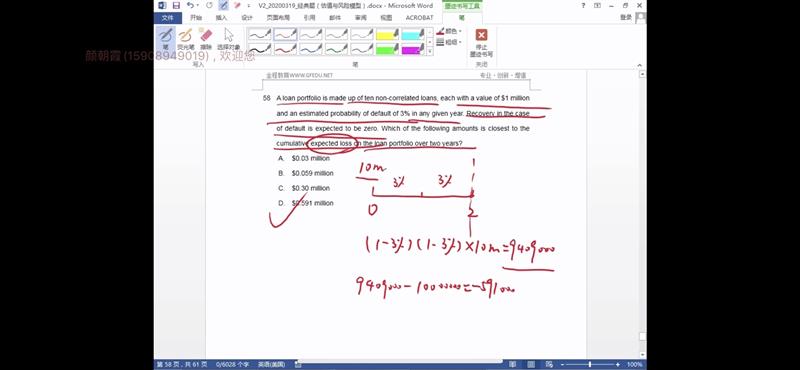 V2_20200319_经典题（估值与风险模型）.docx - Word
墨迹书写工具
文件 开始 插入 设计 页面布局 引用 邮件 审阅 视图 ACROBAT 笔
登录
颜朝霞(15908949019) , 欢迎您
笔 荧光笔 橡皮擦 选择对象
颜色
粗细
停止墨迹书写
写入 笔 关闭
金程教育WWW.GFEDU.NET
专业·创新·增值
58 A loan portfolio is made up of ten non-correlated loans, each with a value of $1 million
and an estimated probability of default of 3% in any given year. Recovery in the case
of default is expected to be zero. Which of the following amounts is closest to the
cumulative expected loss on the loan portfolio over two years?
A. $0.03 million
B. $0.059 million
C. $0.30 million
D. $0.591 million
10m
3% 3%
0 2
(1-3%)(1-3%)×10m=9409000
9409000-10000000=-591000
第 58 页，共 61 页 0/6028 个字 英语(美国)
100%